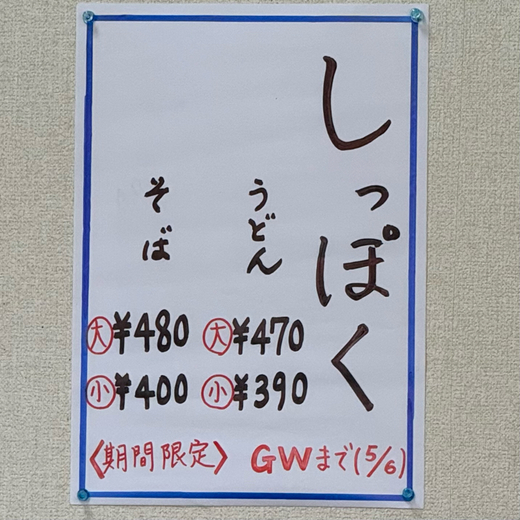 しっぽく
うどん
大 ¥470
小 ¥390
そば
大 ¥480
小 ¥400
〈期間限定〉 GWまで(5/6)